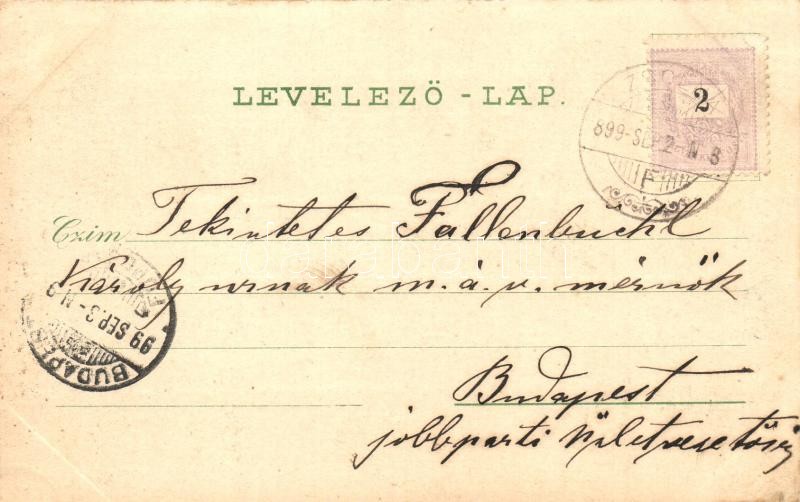 LEVELEZŐ - LAP.
2
899-SEP.2 - N 8
F
Czím Tekintetes Fallenbüchl
Károly urnak m. á. v. mérnök
99 SEP. 3 - N 9
BUDAPEST
Budapest
jobbparti üzletvezetőség